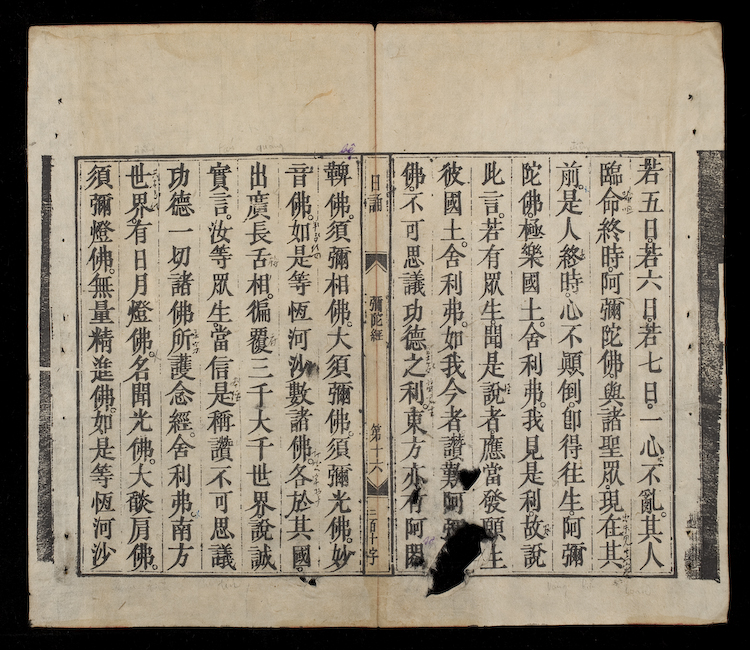 若五日。若六日。若七日。一心不亂。其人
臨命終時。阿彌陀佛。與諸聖眾。現在其
前。是人終時。心不顛倒。即得往生阿彌
陀佛。極樂國土。舍利弗。我見是利。故說
此言。若有眾生聞是說者。應當發願生
彼國土。舍利弗。如我今者。讚歎阿彌
佛。不可思議功德之利。東方亦有阿閦
日誦
彌陀經
第十六
二百十字
鞞佛。須彌相佛。大須彌佛。須彌光佛。妙
音佛。如是等恆河沙數諸佛。各於其國。
出廣長舌相。徧覆三千大千世界。說誠
實言。汝等眾生。當信是稱讚不可思議
功德一切諸佛所護念經。舍利弗。南方
世界。有日月燈佛。名聞光佛。大燄肩佛。
須彌燈佛。無量精進佛。如是等恆河沙